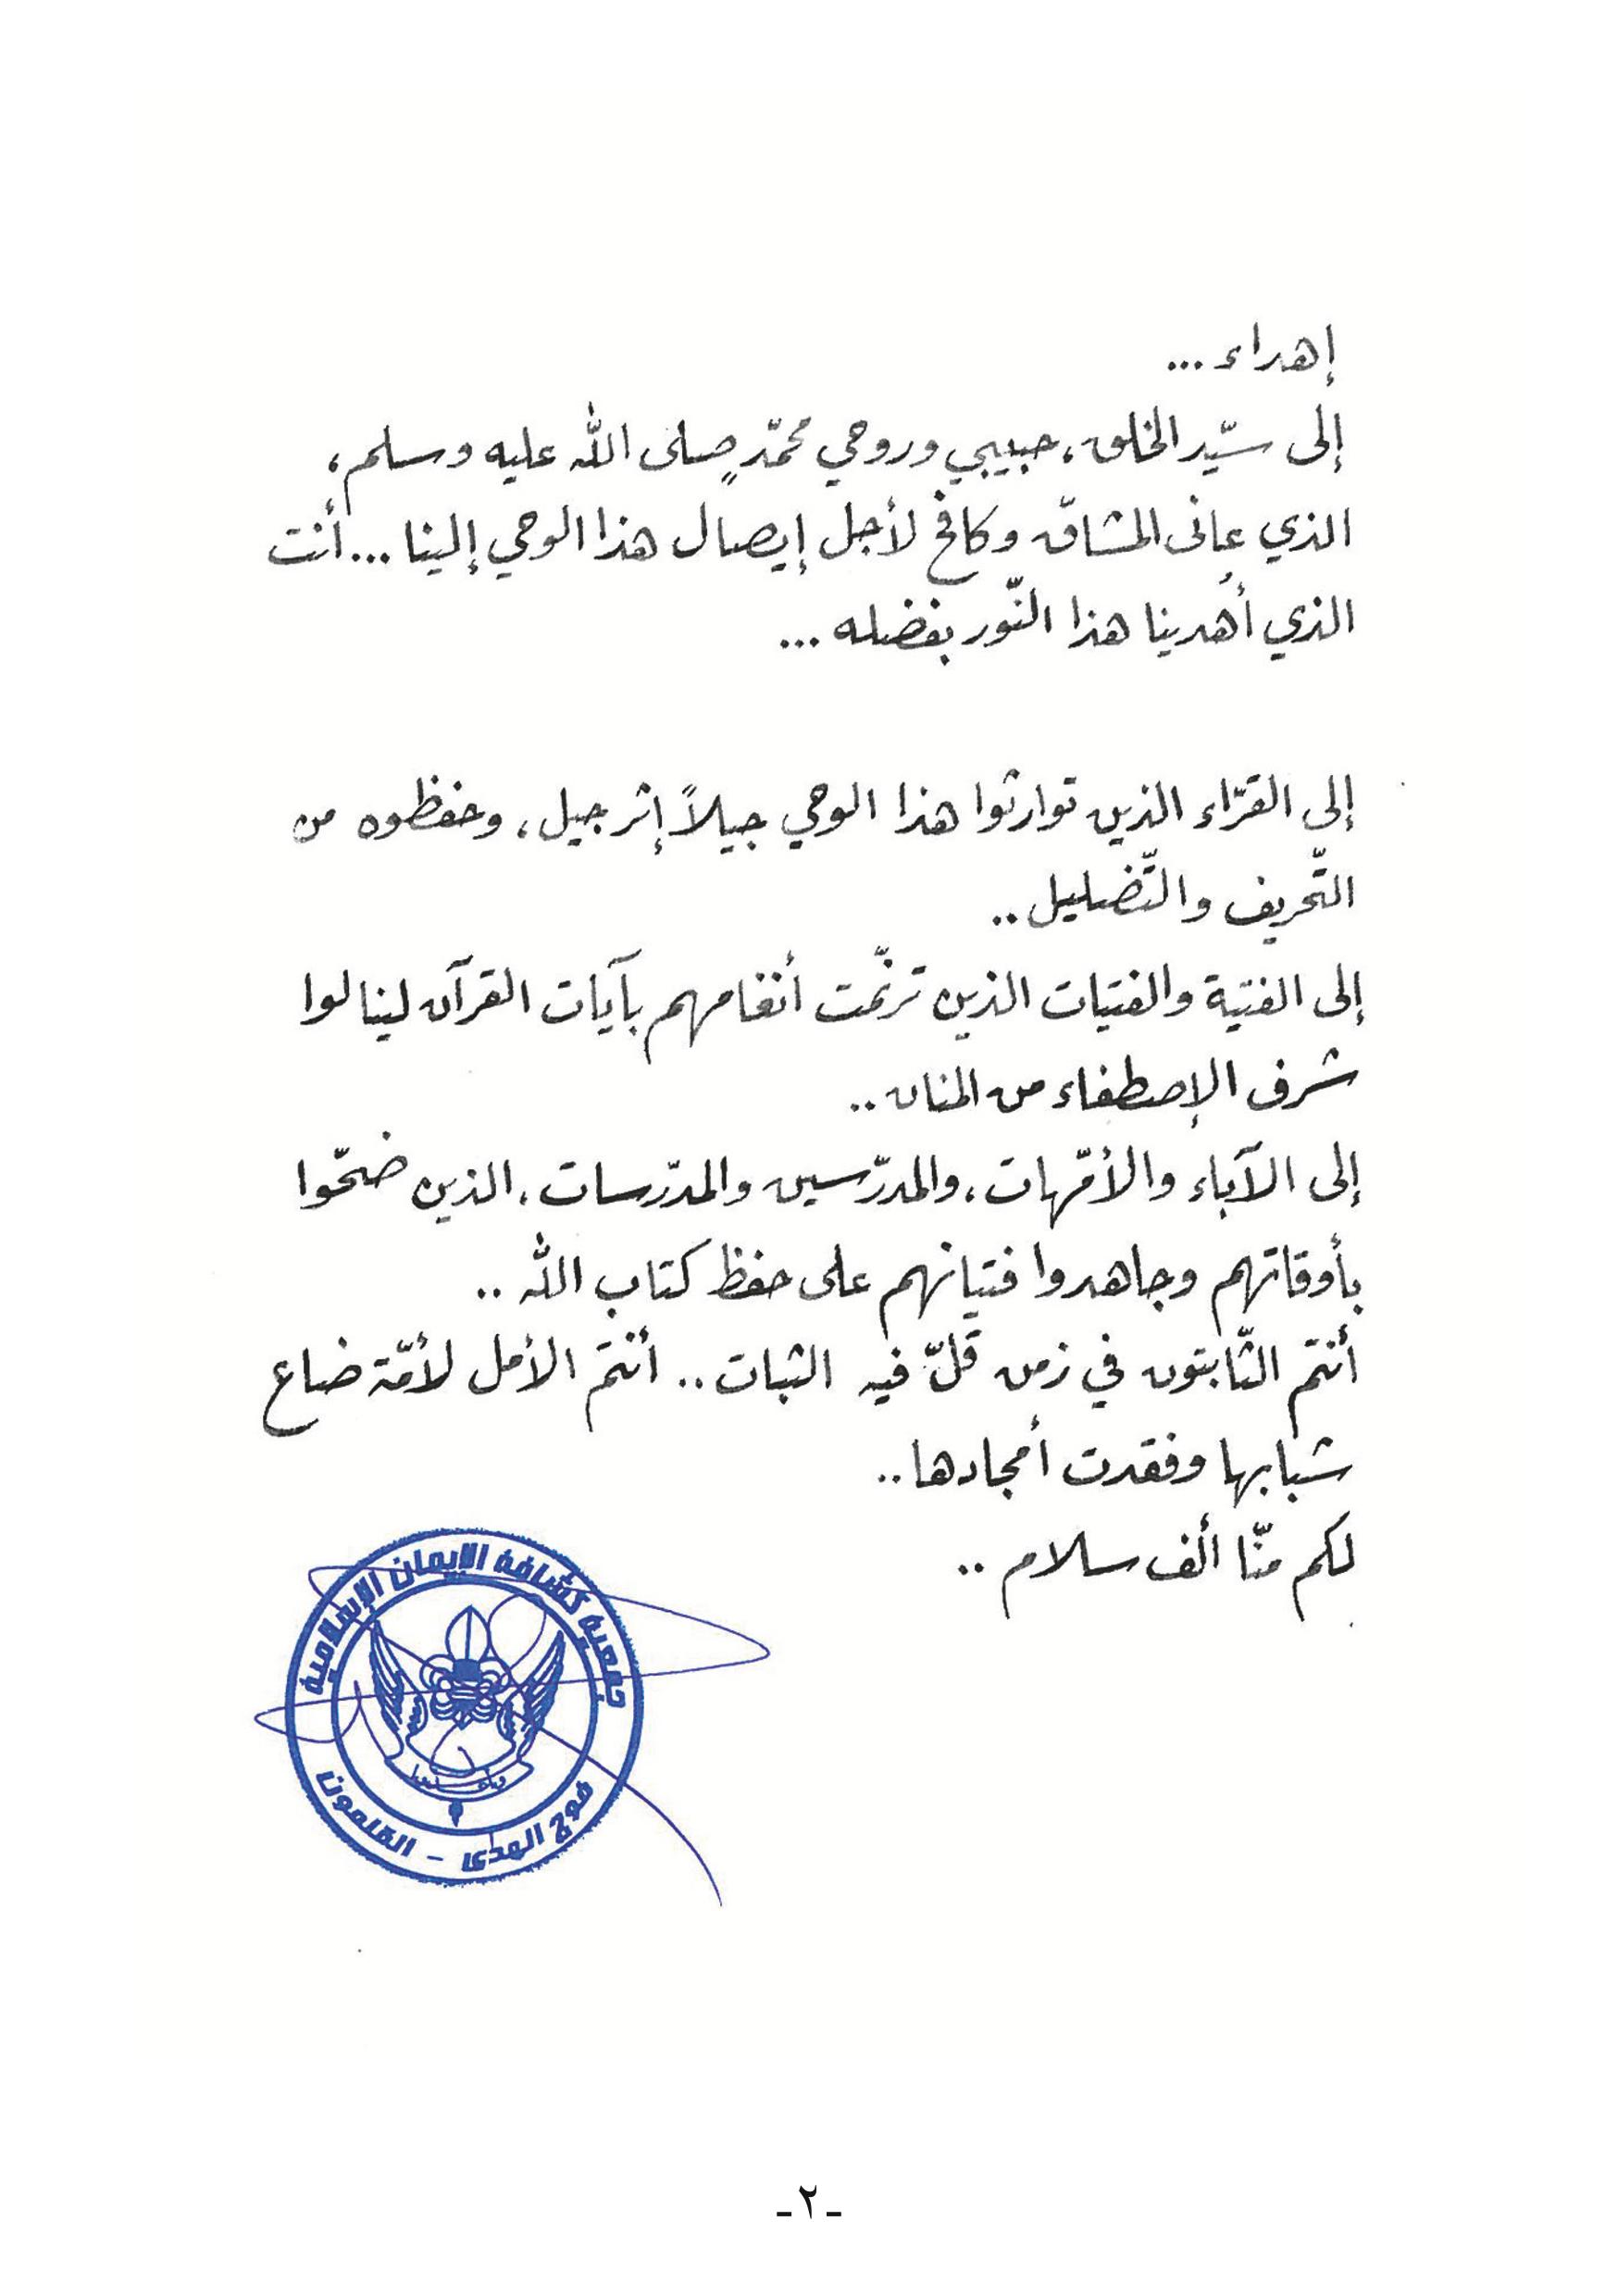 إهداء ...
إلى سيّد الخلق، حبيبي وروحي محمّدٍ صلى الله عليه وسلم،
الذي عانى المشاقّ وكافح لأجل إيصال هذا الوحي إلينا ... أنت
الذي أُهدينا هذا النّور بفضله ...
إلى القرّاء الذين توارثوا هذا الوحي جيلاً إثر جيل، وحفظوه من
التّحريف والتّضليل ..
إلى الفتية والفتيات الذين ترنّمت أنغامهم بآيات القرآن لينالوا
شرف الإصطفاء من المنان ..
إلى الآباء والأمّهات، والمدرّسين والمدرّسات، الذين ضحّوا
بأوقاتهم وجاهدوا فتيانهم على حفظ كتاب الله ..
أنتم الثّابتون في زمن قلّ فيه الثبات .. أنتم الأمل لأمّة ضاع
شبابها وفقدت أمجادها ..
لكم منّا ألف سلام ..
جمعية كشافة الإيمان الإسلامية
فوج الهدى - القلمون
- ٢ -